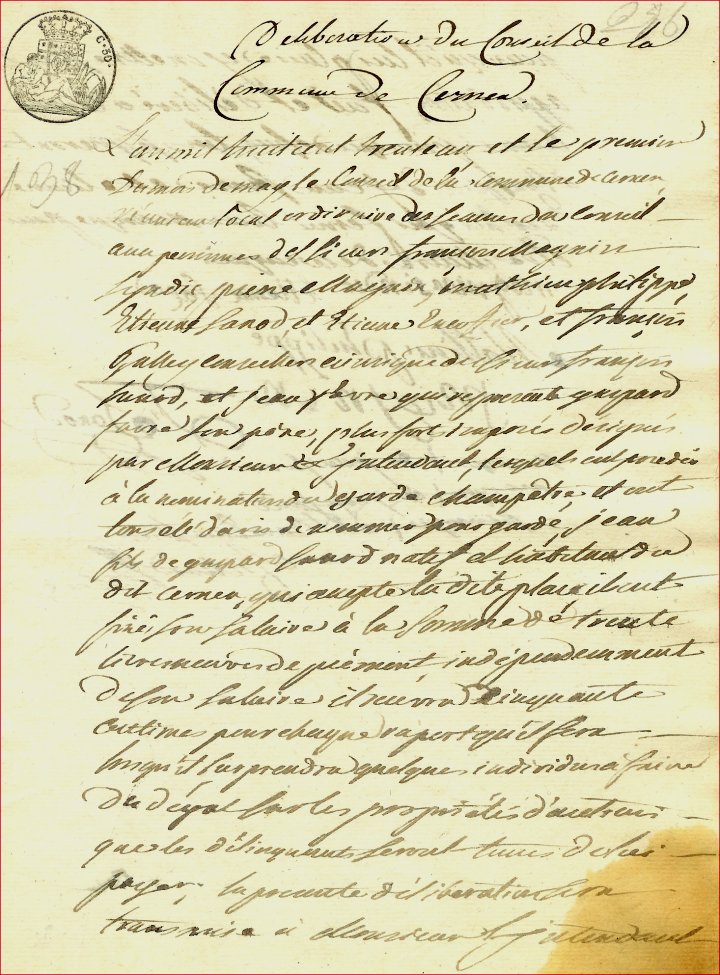 C. 50.
Deliberation du Conseil de la
Commune de Cernex.
L'an mil huit cent trente cinq et le premier
Du mois de may le Conseil de la Commune de cernex
local ordinaire des seances du Conseil
aux personnes des sieurs françois Magnin
syndic, pierre Magnin, mathieu philippe,
Etienne et Etienne et françois
conseillers françois
et jean favre qui represente gaspard
favre son père, plus fort imposés designés
par Monsieur L'jntendant, lesquels ont procédé
à la nomination du garde champêtre, et ont
tous été d'avis de nommer pour garde, jean
fils de gaspard natif et habitant du
dit Cernex, qui accepte la dite place ils ont
fixé son salaire à la somme de trente
livres neuves de piémont indépendemment
de son salaire il recevra cinquante
centimes pour chaque raport qu'il fera
lorsqu'il surprendra quelques individus à faire
Du dégat sur les propriétés d'autrui
que les délinquants seront tenus de lui
payer; la presente déliberation sera
transmise à Monsieur L'jntendant